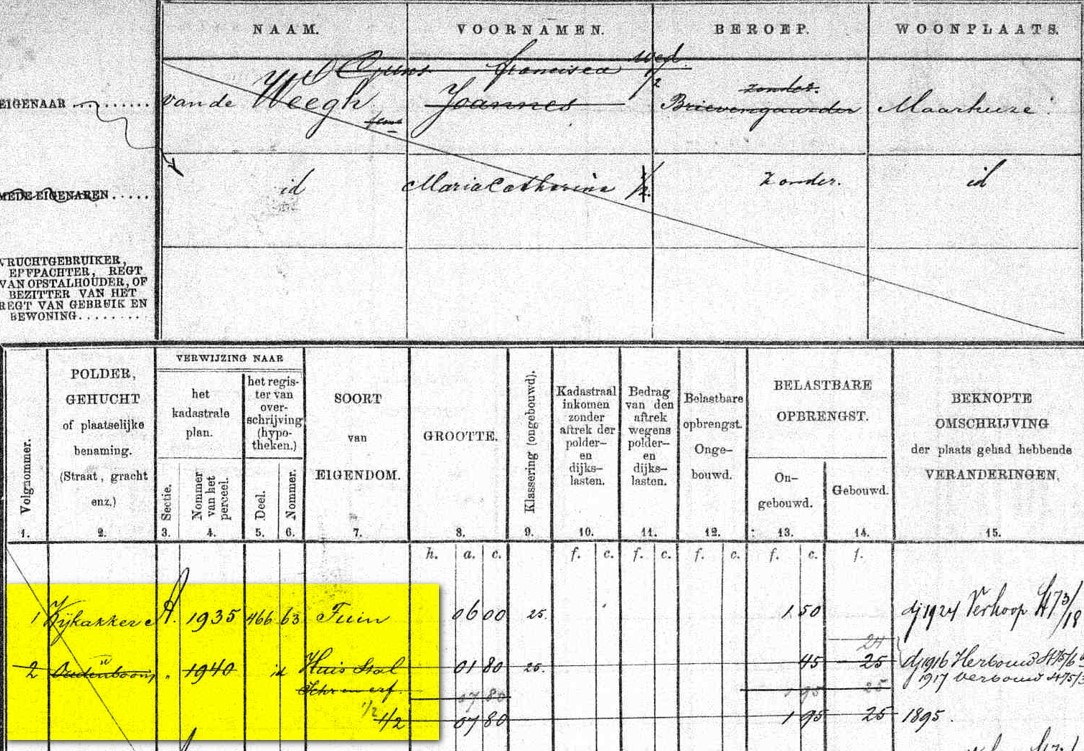 NAAM. VOORNAMEN. BEROEP. WOONPLAATS.
francisca wed
zonder.
EIGENAAR van de Weegh Joannes 1/2 Brievengaarder Maarheeze
MEDE-EIGENAREN id Maria Catharina 1/2 Zonder. id
VRUCHTGEBRUIKER,
ERFPACHTER, REGT
VAN OPSTALHOUDER, OF
BEZITTER VAN HET
REGT VAN GEBRUIK EN
BEWONING
Volgnommer.
POLDER,
GEHUCHT
of plaatselijke
benaming.
(Straat, gracht
enz.)
VERWIJZING NAAR
het
kadastrale
plan.
Sectie.
Nommer
van het
perceel.
het regis-
ter van
over-
schrijving
(hypo-
theken.)
Deel.
Nommer.
SOORT
van
EIGENDOM.
GROOTTE.
Klassering (ongebouwd).
Kadastraal
inkomen
zonder
aftrek der
polder-
en
dijks-
lasten.
Bedrag
van den
aftrek
wegens
polder-
en
dijks-
lasten.
Belastbare
opbrengst.
Onge-
bouwd.
BELASTBARE
OPBRENGST.
On-
gebouwd.
Gebouwd.
BEKNOPTE
OMSCHRIJVING
der plaats gehad hebbende
VERANDERINGEN.
1. 2. 3. 4. 5. 6. 7. 8. 9. 10. 11. 12. 13. 14. 15.
h. a. c. f. c. f. c. f. c. f.
1 A. 1935 466 63 Tuin 06 00 25. 1.50 dj 1924 Verkoop
24
2 1940 id Huis Stal 01 80 25. 45 25 dj 1916 Herbouw
Schr en erf. 07 80 1 95 25 1917 verbouwd
1/2 1/2 07 80 1 95 25 1895.